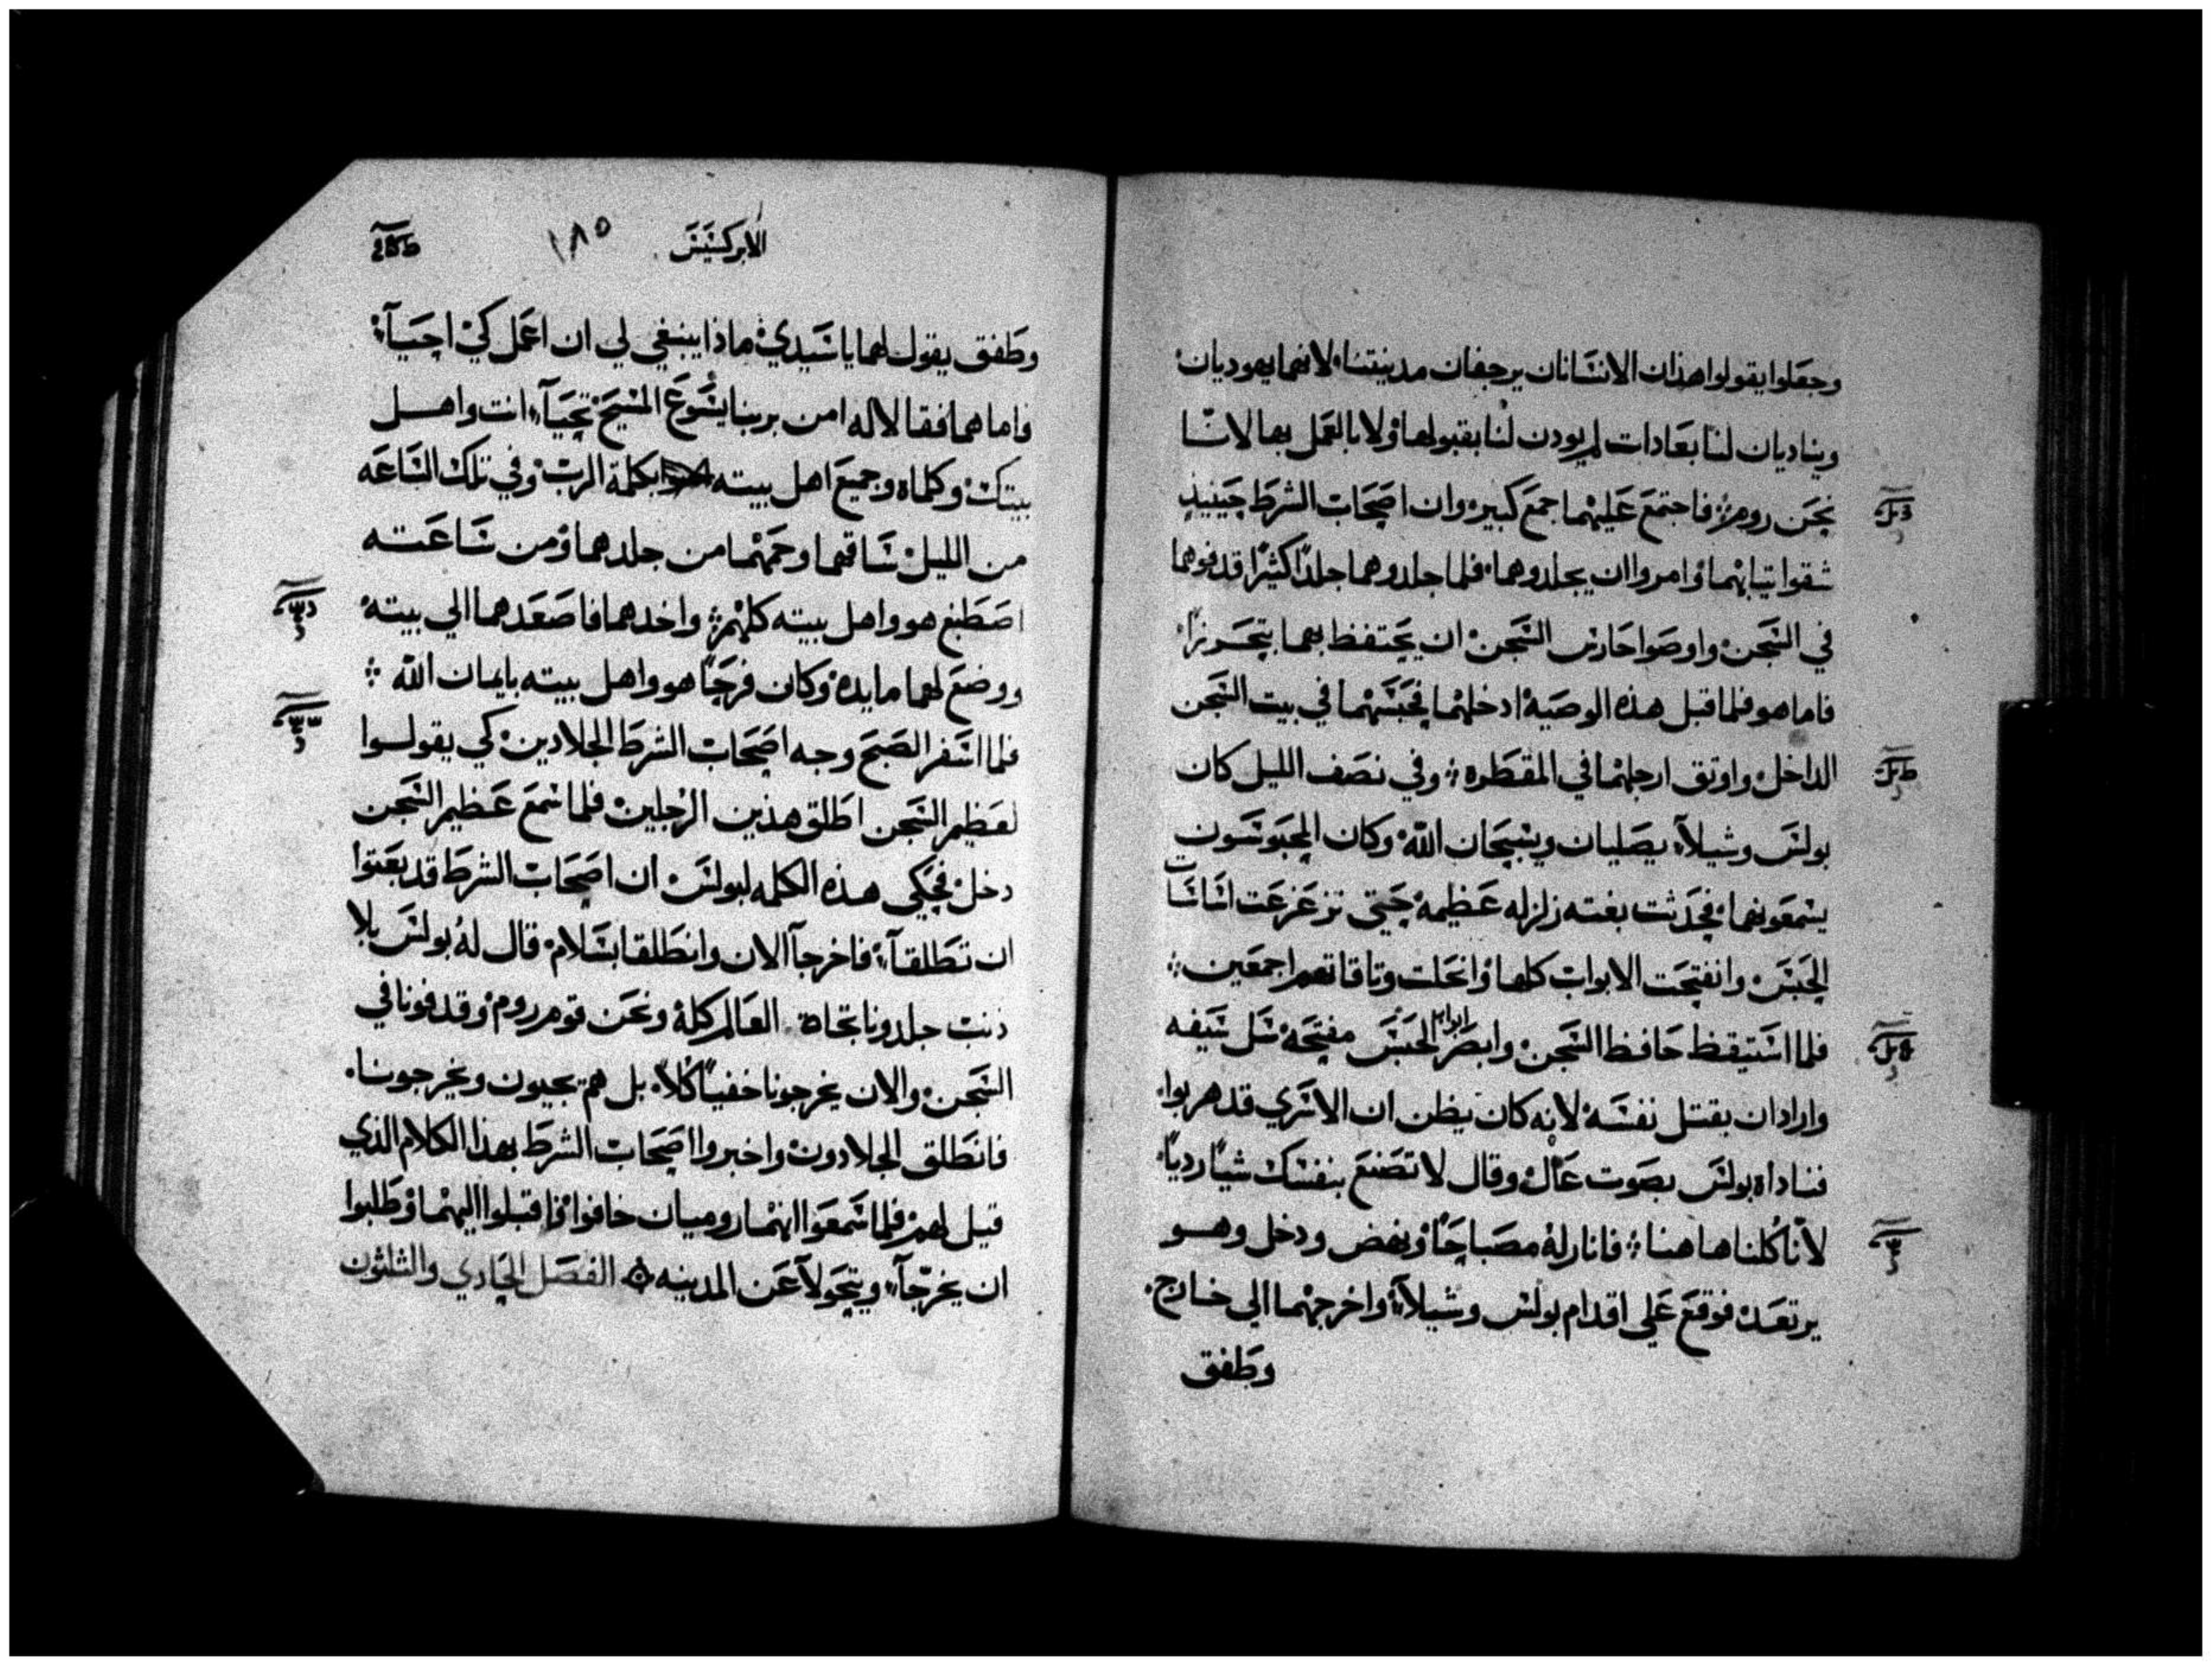 وجعلوا يقولوا هذان الانسانان يرجفان مدينتنا لانهما يهوديان
ويناديان لنا بعادات لم يودن لنا بقبولها ولا بالعمل بها لانا
نحن روم فاجتمع عليهما جمع كبير وان اصحاب الشرط حينيد
شقوا تيابهما وامروا ان يجلدوهما فلما جلدوهما جلدًا كثيرًا قدفوهما
في السجن واوصوا حارس السجن ان يحتفظ بهما بتحرز
فاما هو فلما قبل هذه الوصية ادخلهما فحبسهما في بيت السجن
الداخل واوتق ارجلهما في المقطره وفي نصف الليل كان
بولس وشيلا يصليان ويسبحان الله وكان المحبوسون
يسمعونهما فحدثت بغته زلزله عظيمة حتي تزعزعت اساسات
الحبس وانفتحت الابواب كلها وانحلت وتاقاتهم اجمعين
فلما استيقظ حافظ السجن وابصر ابواب الحبس مفتحة سل سيفه
واراد ان يقتل نفسه لانه كان يظن ان الاسري قد هربوا
فناداه بولس بصوت عال وقال لا تصنع بنفسك شيًا رديًا
لأنا كلنا هاهنا فانار له مصباحًا ونهض ودخل وهو
يرتعد فوقع علي اقدام بولس وشيلا واخرجهما الي خارج
وطفق
الابركسيس ١٨٥
وطفق يقول لهما يا سيدي ماذا ينبغي لي ان اعمل كي احيا
فاما هما فقالا له امن بربنا يسوع المسيح تحيا انت واهل
بيتك وكلماه وجميع اهل بيته بكلمة الرب وفي تلك الساعه
من الليل ساقهما وحمهما من جلدهما ومن ساعته
اصطبغ هو واهل بيته كلهم واخدهما فاصعدهما الي بيته
ووضع لهما مايدة وكان فرحًا هو واهل بيته بايمان الله
فلما اسفر الصبح وجه اصحاب الشرط الجلادين كي يقولوا
لعظيم السجن اطلق هذين الرجلين فلما سمع عظيم السجن
دخل فحكي هذه الكلمه لبولس ان اصحاب الشرط قد بعتوا
ان تطلقا فاخرجا الان وانطلقا بسلام قال له بولس بلا
دنب جلدونا تجاه العالم كله ونحن قوم روم وقدفونا في
السجن والان يخرجونا خفيًا كلا بل هم يجيون ويخرجونا
فانطلق الجلادون واخبروا اصحاب الشرط بهذا الكلام الذي
قيل لهم فلما سمعوا انهما روميان خافوا واقبلوا اليهما وطلبوا
ان يخرجا ويتحولا عن المدينه الفصل الحادي والثلثون